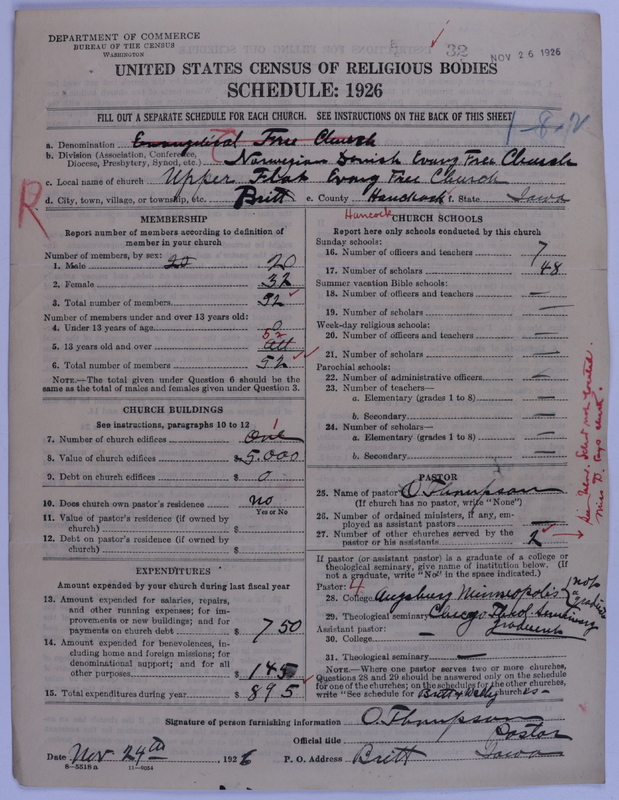 DEPARTMENT OF COMMERCE
BUREAU OF THE CENSUS
WASHINGTON
32
NOV 26 1926
UNITED STATES CENSUS OF RELIGIOUS BODIES
SCHEDULE: 1926
FILL OUT A SEPARATE SCHEDULE FOR EACH CHURCH. SEE INSTRUCTIONS ON THE BACK OF THIS SHEET
1-8-12
a. Denomination Evangelical Free Church
b. Division (Association, Conference, Diocese, Presbytery, Synod, etc.) Norwegian Danish Evang Free Church
c. Local name of church Upper Flat Evang Free Church
d. City, town, village, or township, etc. Britt e. County Handcock f. State Iowa
Hancock
R
MEMBERSHIP
Report number of members according to definition of member in your church
Number of members, by sex:
1. Male 20
2. Female 32
3. Total number of members 52
Number of members under and over 13 years old:
4. Under 13 years of age 0
52
5. 13 years old and over all
6. Total number of members 52
NOTE.—The total given under Question 6 should be the same as the total of males and females given under Question 3.
CHURCH BUILDINGS
See instructions, paragraphs 10 to 12
1
7. Number of church edifices One
8. Value of church edifices $5.000
9. Debt on church edifices $ 0
10. Does church own pastor's residence no
Yes or No
11. Value of pastor's residence (if owned by church) $
12. Debt on pastor's residence (if owned by church) $
EXPENDITURES
Amount expended by your church during last fiscal year
13. Amount expended for salaries, repairs, and other running expenses; for improvements or new buildings; and for payments on church debt $ 750
14. Amount expended for benevolences, including home and foreign missions; for denominational support; and for all other purposes $ 145
15. Total expenditures during year $ 895
CHURCH SCHOOLS
Report here only schools conducted by this church
Sunday schools:
16. Number of officers and teachers 7
17. Number of scholars 48
Summer vacation Bible schools:
18. Number of officers and teachers —
19. Number of scholars —
Week-day religious schools:
20. Number of officers and teachers —
21. Number of scholars —
Parochial schools:
22. Number of administrative officers —
23. Number of teachers—
a. Elementary (grades 1 to 8) —
b. Secondary —
24. Number of scholars—
a. Elementary (grades 1 to 8) —
b. Secondary —
PASTOR
25. Name of pastor O. Thompson
(If church has no pastor, write "None")
26. Number of ordained ministers, if any, employed as assistant pastors —
27. Number of other churches served by the pastor or his assistants 2
If pastor (or assistant pastor) is a graduate of a college or theological seminary, give name of institution below. (If not a graduate, write "No" in the space indicated.)
Pastor: 4
28. College Augsburg Minneapolis
not a graduate
29. Theological seminary Chicago Theol Seminary
Graduate
Assistant pastor:
30. College —
31. Theological seminary —
NOTE.—Where one pastor serves two or more churches, Questions 28 and 29 should be answered only on the schedule for one of the churches; on the schedules for the other churches, write "See schedule for Britt churches
Signature of person furnishing information O. Thompson
Official title Pastor
Date Nov 24th, 1926 P. O. Address Britt Iowa
8-5518 a 11-9054